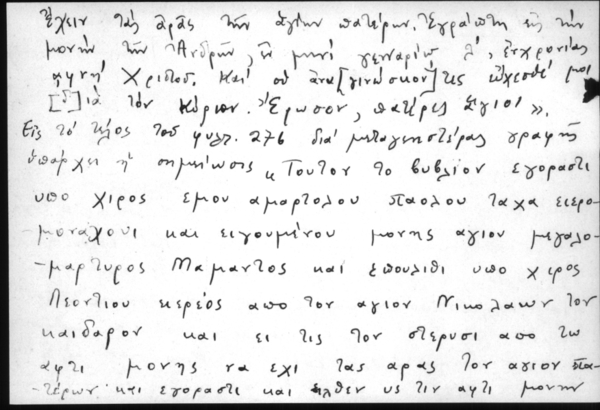 ἔχειν τὰς ἀρὰς τῶν ἁγίων πατέρων. Ἐγράφτη εἰς τὴν
μονὴν τῶν Ἀνδρῶν, ἐν μηνὶ γενναρίῳ λ΄, ἐν χρονίας
αφνη΄ Χριστοῦ. Καὶ οἱ ἀνα[γινώσκον]τες εὔχεσθέ μοι
[δ]ιὰ τὸν Κύριον. Ἔρωσον, πατέρες ἅγιοι».
Εἰς τὸ τέλος τοῦ φυλλ. 276 διὰ μεταγενεστέρας γραφῆς
ὑπάρχει ἡ σημείωσις «Τουτον το βυβλιον εγοραστι
υπο χιρος εμου αμαρτολου παολου ταχα ειερο-
-μοναχουι και ειγουμένου μονης αγιου μεγαλο-
-μαρτυρος Μαμαντος και επουλιθι υπο χειρος
Λεοντιου κερεός απο τον αγιον Νικολαων τον
καιδαρον και ει τις τον στερυσι απο τω
αφτι μονης να εχι τας αρας τον αγιον πα-
-τέρων και εγοραστι και ηλθεν υς τιν αφτι μονην